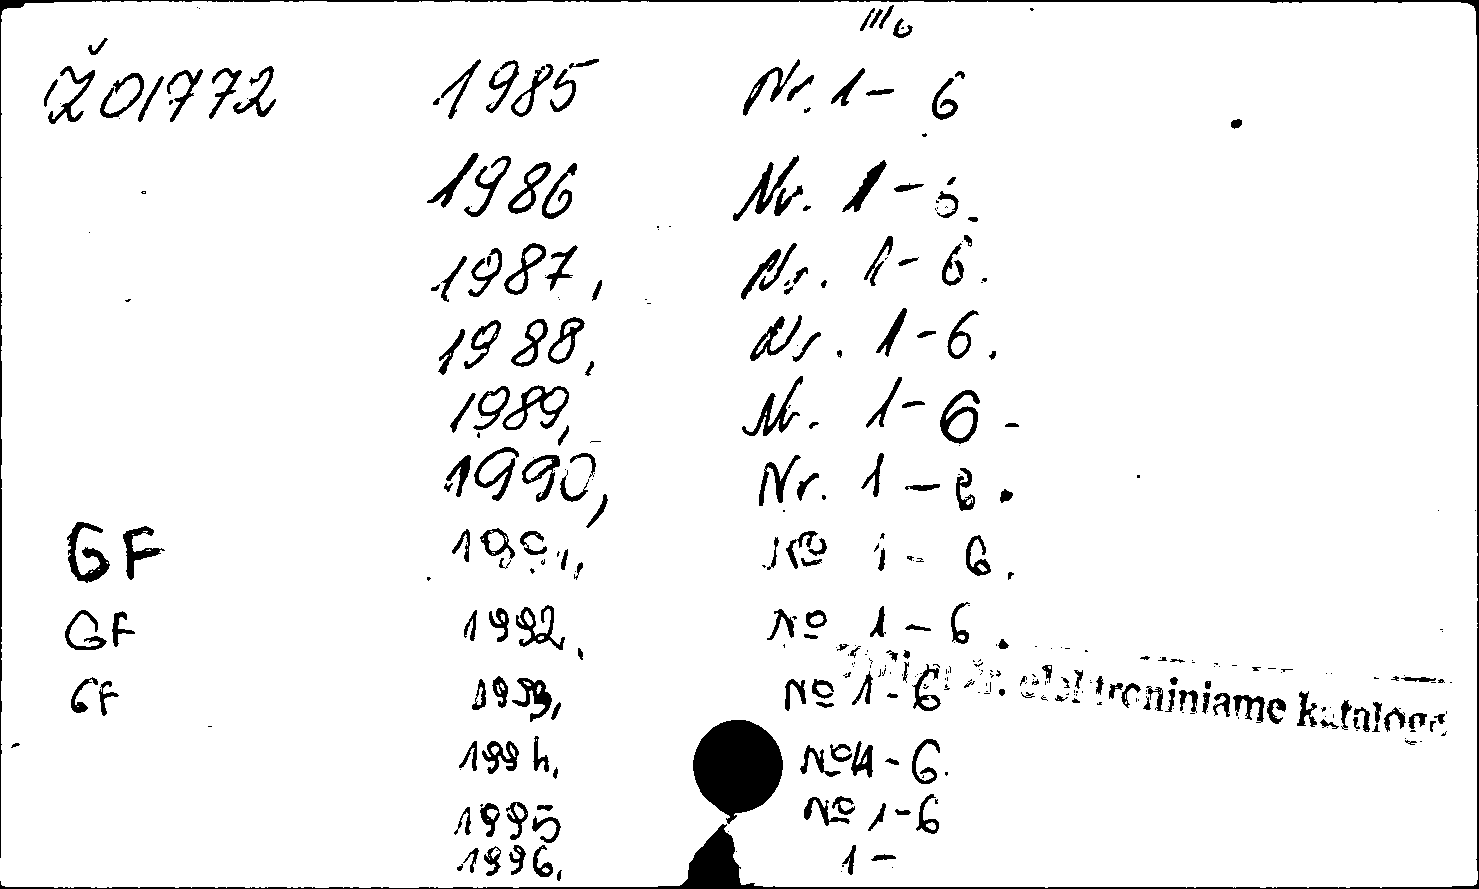 Ž01772 1985 Nr. 1 - 6
1986 Nr. 1 - 6.
1987, Nr. 1 - 6.
1988, Nr. 1 - 6.
1989, Nr. 1 - 6 -
1990, Nr. 1 - 6.
GF 1991, № 1 - 6.
GF 1992, № 1 - 6.
GF 1993, № 1 - 6
žr. elektroniniame kataloge
1994, № 1 - 6.
1995 № 1 - 6
1996, 1 -